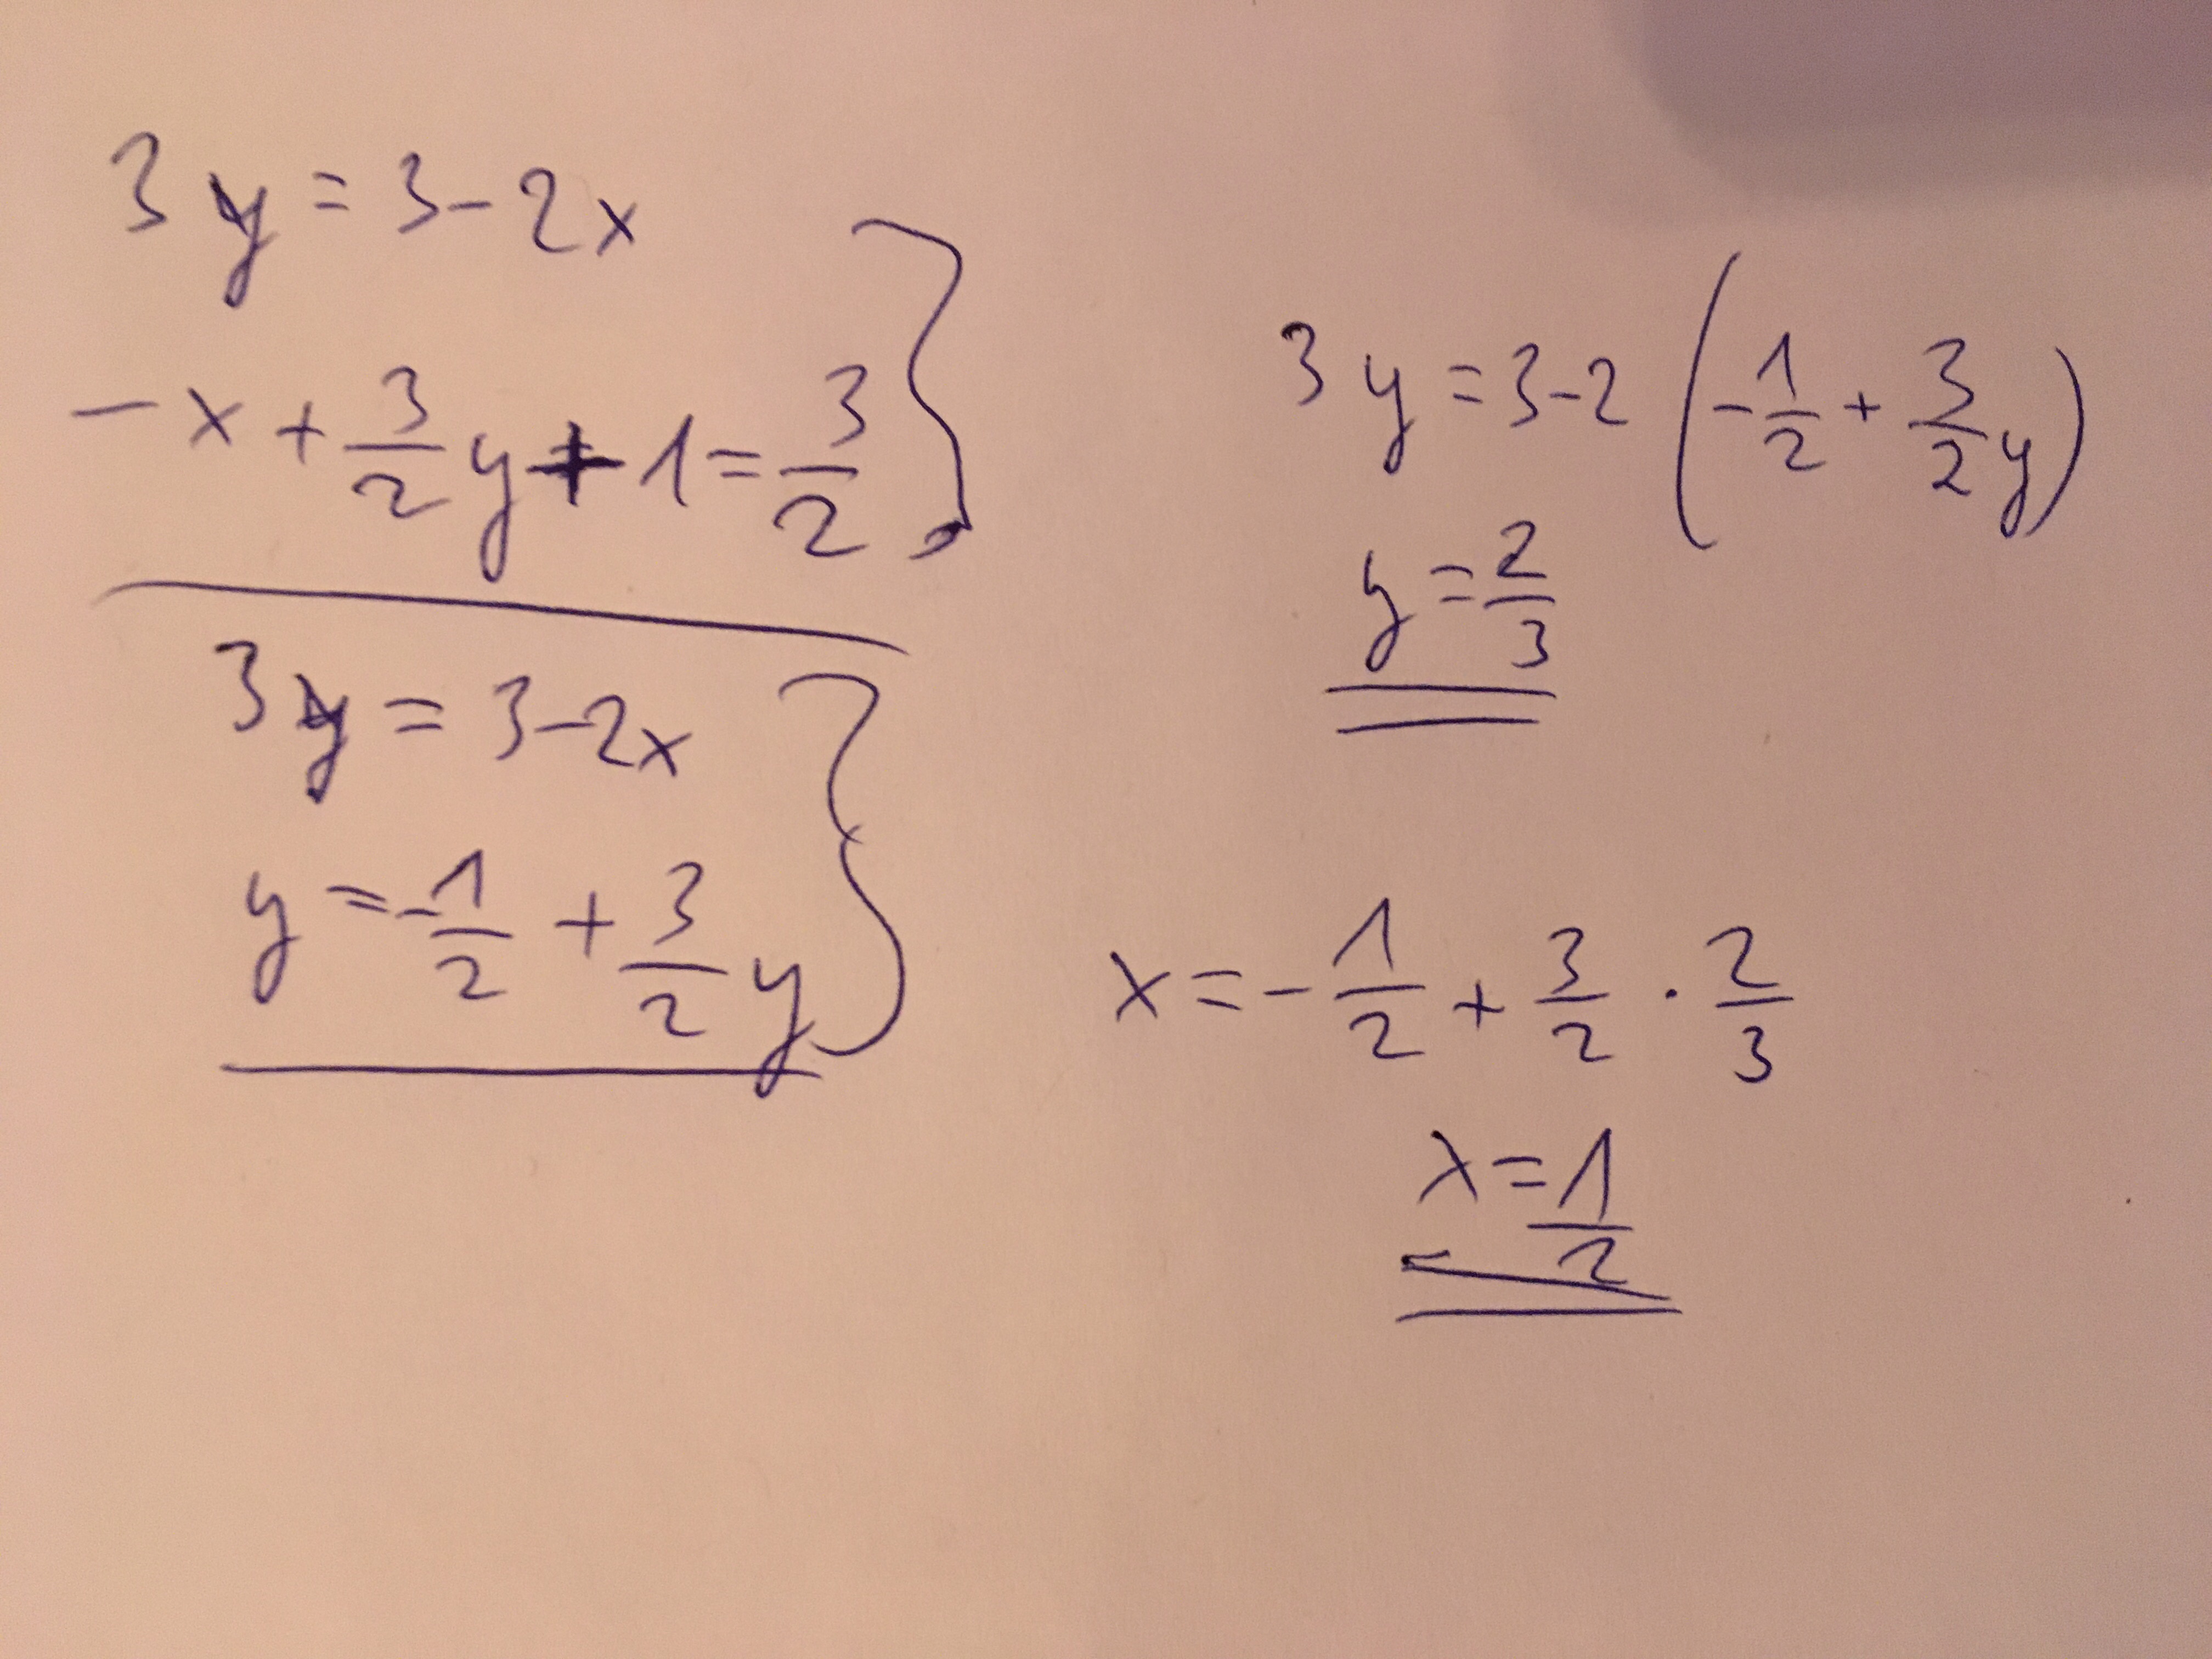 3y = 3 - 2x
-x + 3/2 y + 1 = 3/2
3y = 3 - 2x
y = -1/2 + 3/2 y
3y = 3 - 2 (-1/2 + 3/2 y)
y = 2/3
x = -1/2 + 3/2 · 2/3
x = 1/2